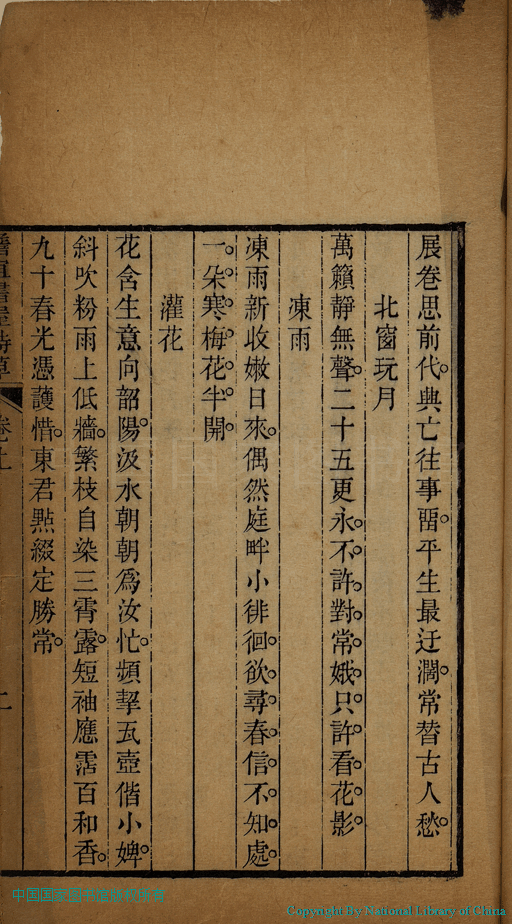 展卷思前代。興亡往事畱。平生最迂濶。常替古人愁。
北窗玩月
萬籟靜無聲。二十五更永。不許對常娥。只許看花影。
凍雨
凍雨新收嫩日來。偶然庭畔小徘徊。欲尋春信不知處。
一朵寒梅花半開。
灌花
花含生意向韶陽。汲水朝朝爲汝忙。頻挈瓦壺偕小婢。
斜吹粉雨上低牆。繁枝自染三霄露。短袖應霑百和香。
九十春光憑護惜。東君點綴定勝常。
書屋詩草 卷上 二
Copyright By National Library of China